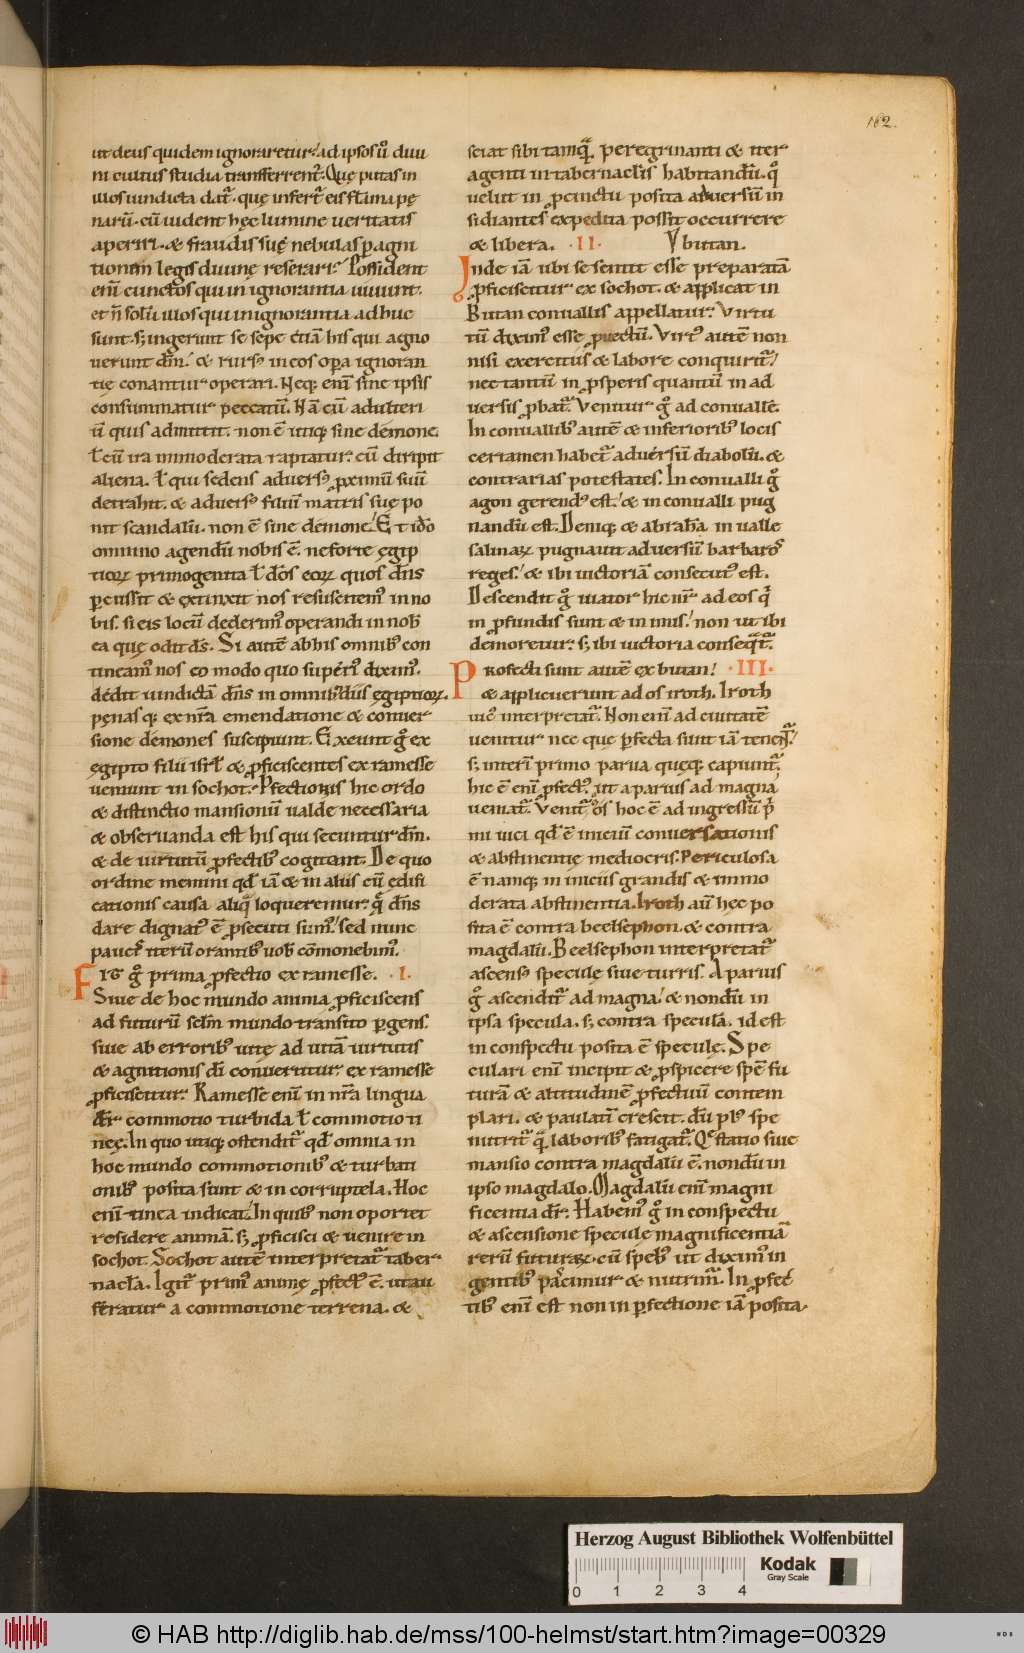 162.
ut deus quidem ignoraretur. ad ipsos ũ diui
ni cultus studia transferrent̃. Quę putas in
illos uindicta dat᷑. quę infert᷑ eis flãma pę
narũ. cũ uident hęc lumine ueritatis
aperiri. & fraudis suę nebulas ꝑ agni
tionem legis diuinę reserari. Possident
enĩ cunctos qui in ignorantia uiuunt.
et ñ solũ illos qui in ignorantia adhuc
sunt. s; ingerunt se sepe etiã his qui agno
uerunt dñm. & rursꝰ in eos oꝑa ignoran
tię conantur operari. Neq; enĩ sine ipsis
consummatur peccatũ. Nã cũ adulteri
ũ quis admittit. non ẽ utiq; sine demone.
ł cũ ira immoderata raptatur. cũ diripit
aliena. ł qui sedens aduersꝰ ꝓximũ suũ
detrahit. & aduersꝰ filiũ matris suę po
nit scandalũ. non ẽ sine demone. Et idõ
omnino agendũ nobis ẽ. ne forte egip
tioꝝ primogenita ł dõs eoꝝ quos dñs
ꝑcussit & extinxit nos resuscitemꝰ in no
bis. si eis locũ dederimꝰ operandi in nob̃
ea que odit dš. Si autẽ ab his omnibꝰ con
tineamꝰ nos eo modo quo superiꝰ diximꝰ.
dedit uindictã dñs in omnibꝰ diis egiptioꝝ.
pęnas q; ex nr̃a emendatione & conuer
sione demones suscipiunt. Exeunt g̊ ex
ęgipto filii isrł & ꝓficiscentes ex ramesse
uemunt in sochot. Pfectionis hic ordo
& distinctio mansionũ ualde necessaria
& obseruanda est his qui secuntur dñm.
& de uirtutũ ꝓfectibꝰ cogitant. De quo
ordine memini qđ iã & in aliis cũ edifi
cationis causa aliq̃ loqueremur. q̃ dñs
dare dignatꝰ ẽ ꝓsecuti sumꝰ. sed nunc
paucis iterũ orantibꝰ uob̃ cõmonebimꝰ.
Fit g̊ prima ꝓfectio ex ramesse. ·I·
Siue de hoc mundo anima ꝓficiscens
ad futurũ seclm mundo transito ꝑgens.
siue ab erroribꝰ uitę ad uitã uirtutis
& agnitionis dĩ conuertitur. ex ramesse
ꝓficiscitur. Ramesse enĩ in nr̃a lingua
dr̃ commotio turbida ł commotio ti
nęę. In quo utiq; ostendit᷑ qđ omnia in
hoc mundo commotionibꝰ & turbati
onibꝰ posita sunt & in corruptela. Hoc
enĩ tinea indicat. In quibꝰ non oportet
residere animã. s; ꝓficisci & uenire in
sochot. Sochot autẽ interpretat᷑ taber
nacła. Igit᷑ primꝰ animę ꝓfectꝰ ẽ. ut au
feratur a commotione terrena. &
sciat sibi tamq̃. peregrinanti & iter
agenti in tabernaclis habitandũ. q̊
uelut in ꝓcinctu posita aduersũ in
sidiantes expedita possit occurrere
& libera. ·II· Ybutan.
Inde iã ubi se sentit esse preparatã
ꝓficiscitur ex sochot. & applicat in
Butan conuallis appellatur. Virtu
tũ diximꝰ esse ꝓuectũ. Virtꝰ autẽ non
nisi exercitiis & labore conquirit᷑.
nec tantũ in ꝓsperis quantũ in ad
uersis ꝓbat᷑. Venitur g̊ ad conuallẽ.
In conuallibꝰ autẽ & inferioribꝰ locis
certamen habet᷑ aduersũ diabolũ. &
contrarias potestates. In conualli g̊
agon gerendꝰ est. & in conualli pug
nandũ est. Deniq; & abrahã in ualle
salinaꝝ pugnauit aduersũ barbaros
reges. & ibi uictoriã consecutꝰ est.
Descendit g̊ uiator hic nr̃ ad eos q̃
in ꝓfundis sunt & in imis. non ut ibi
demoretur. s; ibi uictoria conseq̃t᷑.
Profecti sunt autẽ ex butan. ·III·
& applicuerunt ad os iroth. Iroth
uicꝰ interpretat᷑. Non enĩ ad ciuitatẽ
uenitur nec que ꝑfecta sunt iã tenent᷑.
s; interĩ primo parua quęq; capiunt᷑.
hic ẽ enĩ ꝓfectꝰ. ut a paruis ad magna
ueniat᷑. Venit᷑ os hoc ẽ ad ingressũ p̃
mi uici qđ ẽ iniciũ conuersationis
& abstinentię mediocris. Periculosa
ẽ namq; in iniciis grandis & immo
derata abstinentia. Iroth aũ hęc po
sita ẽ contra beelsephon. & contra
magdalũ. Beelsephon interpretat᷑
ascensꝰ speculę siue turris. A paruis
g̊ ascendit᷑ ad magna. & nondũ in
ipsa specula. s; contra speculã. id est
in conspectu posita ẽ speculę. Spe
culari enĩ incipit & ꝓspicere spẽ fu
turã & altitudinẽ ꝓfectuũ contem
plari. & paulatĩ crescit. dũ plꝰ spe
nutrit᷑ q̃ laboribꝰ fatigat᷑. Que statio siue
mansio contra magdalũ ẽ. nondũ in
ipso magdalo. Magdalũ enĩ magni
ficentia dr̃. Habemꝰ g̊ in conspectu
& ascensione speculę magnificentiã
rerũ futuraꝝ. cũ spebꝰ ut diximꝰ in
gentibꝰ pascimur & nutrim᷑. In ꝓfec
tibꝰ enĩ est non in ꝑfectione iã posita.
Herzog August Bibliothek Wolfenbüttel
0 1 2 3 4
Kodak
Gray Scale
© HAB http://diglib.hab.de/mss/100-helmst/start.htm?image=00329